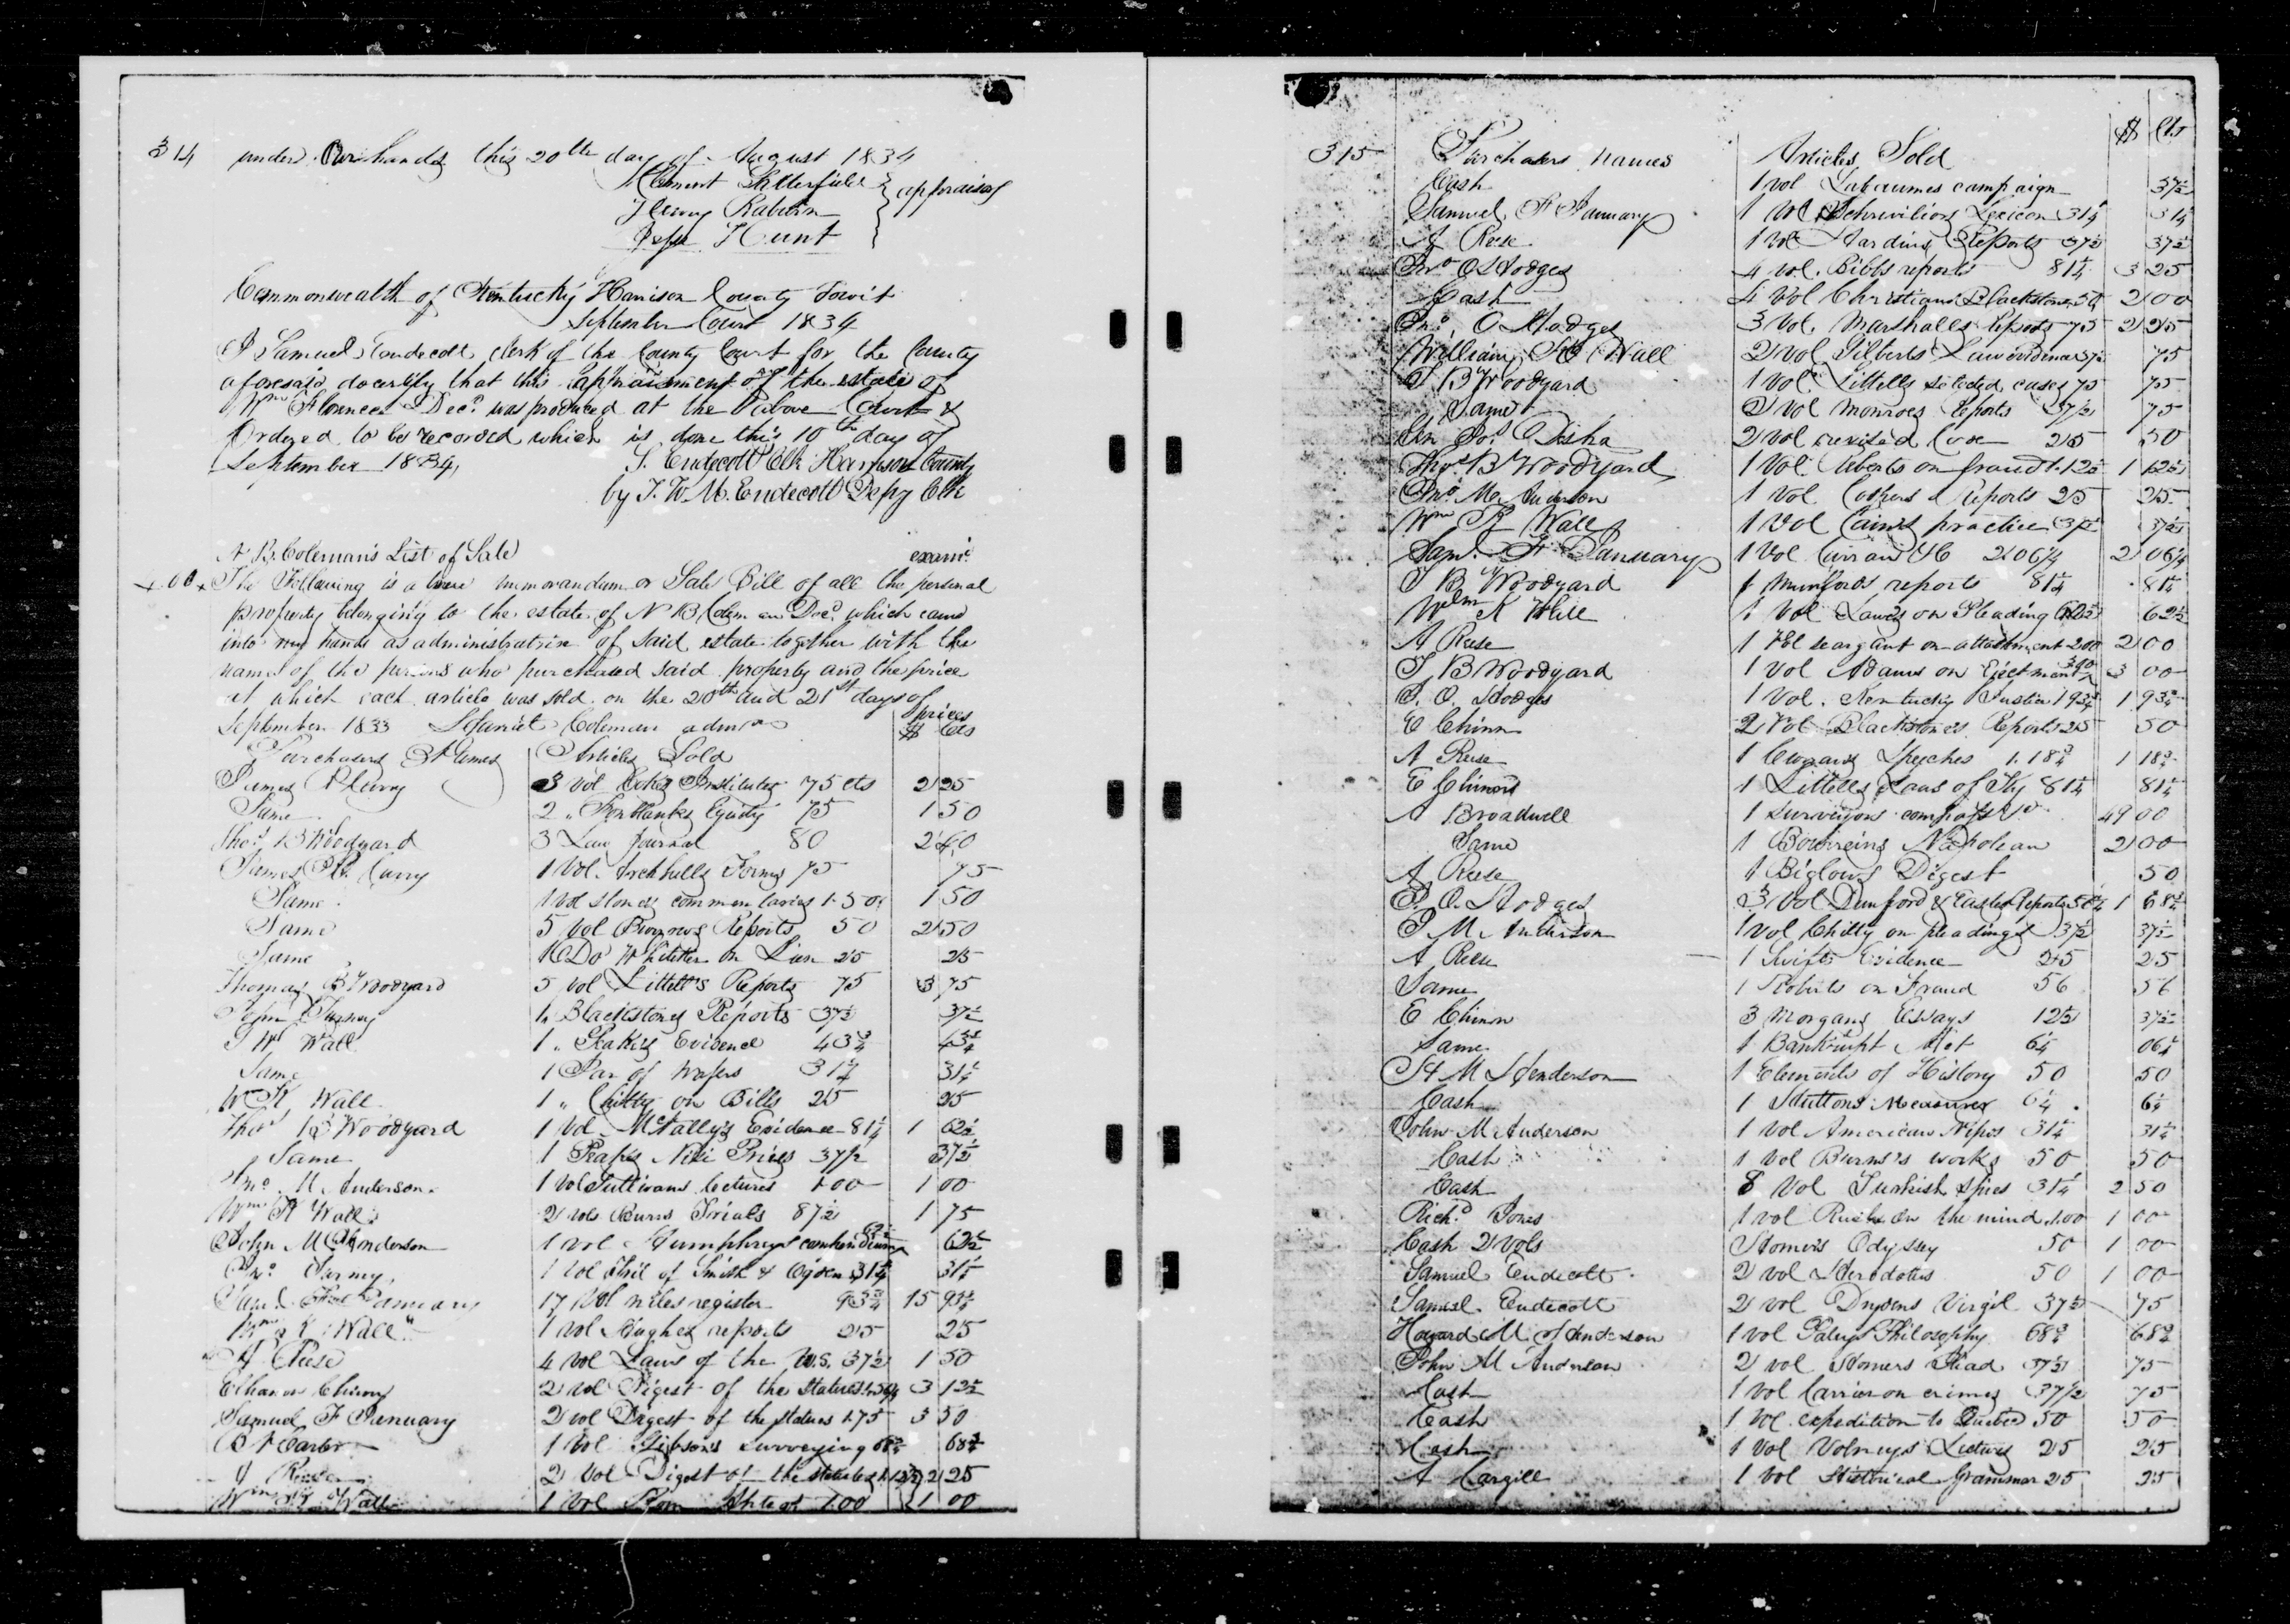 314 under Our hands this 20th day of August 1834
Clement Satterfield } appraisers
Henry Raburn
Jesse Hunt
Commonwealth of Kentucky Harrison County Towit
September Court 1834
I Samuel Endecott clerk of the County Court for the County
aforesaid do certify that this appraisment of the estate of
Wm Florence Decd was produced at the above Court &
Ordered to be recorded which is done this 10th day of
September 1834,
S. Endecott Clk Harrison County
by J. W. M. Endecott Depy Clk
N B. Coleman's List of Sale
The Following is a true memorandum or Sale Bill of all the personal
property belonging to the estate of N B Coleman Decd. which came
into my hands as administratrix of said estate together with the
names of the persons who purchased said property and the price
at which each article was sold on the 20th and 21st days of
September 1833 Coleman admrx prices
Purchasers Names Articles Sold $ Cts
James R Curry 3 Vol Cokes Institutes 75 cts 2 25
Same 2 " Fonblanks Equity 75 1 50
Thos. B Woodyard 3 Law Journal 80 2 40
James R. Curry 1 Vol. Archbells Forms 75 75
Same 1 Vol Stones commentaries 1.50 1 50
Same 5 Vol Burrows Reports 50 2 50
Same 1 Do Whitaker on Lien 25 25
Thomas B Woodyard 5 vol Littell's Reports 75 3 75
1 " Blackstones Reports 37½ 37½
Wall 1 " Peake's Evidence 43¾ 43¾
Same 1 Par of Wafers 31¼ 31¼
W K Wall 1 " Chitty on Bills 25 25
Thos B Woodyard 1 Vol McNally's Evidence 81¼ 1 62½
Same 1 Nisi Prius 37½ 37½
Jno. M Anderson 1 Vol Sullivans lectures 1.00 1 00
Wm K Wall 2 vols Burrs Trials 87½ 1 75
John M Anderson 1 vol Humphreys 62½ 62½
Jno. 1 Vol Trial of Smith & Ogden 31¼ 31¼
Saml. F January 17 Vol niles register 93¾ 15 93¾
Wm K Wall 1 Vol Hughes reports 25 25
A Reese 4 Vol Laws of the U.S. 37½ 1 50
Chinn 2 vol Digest of the Statutes 1.56¼ 3 12½
Samuel F January 2 vol Digest of the Statues 1.75 3 50
B Carter 1 Vol Gibsons surveying 68¾ 68¾
A Reese 2 Vol Digest of the statutes 1.12½ 2 25
Wm K Wall 1 Vol 1.00 1 00
315 Purchasers names Articles Sold $ Cts
Cash 1 vol Labaumes campaign 37½
Samuel F January 1 Vol Schrivilions Lexicon 31¼ 31¼
A Reese 1 Vol Hardins Reports 37½ 37½
Jno O Hodges 4 vol. Bibbs reports 81¼ 3 25
Cash 4 Vol Christians Blackstone 50 2 00
Jno. O Hodges 3 Vol. Marshalls Reports 75 2 25
William K Wall 2 Vol Gilberts Law evidence 37½ 75
T B Woodyard 1 Vol Littells selected cases 75 75
Same 2 Vol Monroes Reports 37½ 75
Jos. Desha 2 Vol revised Code 25 50
Thos B Woodyard 1 Vol. Roberts on fraud 1.12½ 1 12½
Jno. M. Anderson 1 Vol Reports 25 25
Wm K Wall 1 Vol Cains practice 37½ 37½
Sam. F. January 1 Vol 2 06¼ 2 06¼
T B Woodyard 1 Munfords reports 81¼ 81¼
Wm K Hill 1 Vol Lawes on Pleading 62½ 62½
A Reese 1 Vol seargant on attachment 200 2 00
T B Woodyard 1 Vol Adams on Ejectment 300 3 00
J. O. Hodges 1 Vol. Kentucky Justice 1 93¾ 1 93¾
E Chinn 2 Vol Blackstones Reports 25 50
A Reese 1 Currans Speeches 1.18¾ 1 18¾
E Chinn 1 Littells Laws of Ky 81¼ 81¼
A Broadwell 1 surveyors compass 49 00
Same 1 Bourreins Napolean 2 00
A Reese 1 Biglows Digest 50
J. O. Hodges 3 Vol Durnford & Easter Reports 56¼ 1 68¾
J M. Anderson 1 vol Chitty on pleadings 37½ 37½
A Reese 1 Swifts Evidence 25 25
Same 1 Roberts on Fraud 56 56
E Chinn 3 Morgans Essays 12½ 37½
Same 1 Bankrupt Act 6¼ 06¼
H M Henderson 1 Elements of History 50 50
Cash 1 Huttons Measures 6¼ 6¼
John M Anderson 1 Vol American Nipos 31¼ 31¼
Cash 1 vol Burns's works 50 50
Cash 8 Vol Turkish Spies 31¼ 2 50
Richd Jones 1 vol Rush on the mind 1.00 1 00
Cash 2 Vols Homers Odyssey 50 1 00
Samuel Endecott 2 vol Herodotus 50 1 00
Samuel Endecott 2 vol Drydens Virgil 37½ 75
Howard M Anderson 1 vol Paleys Philosophy 68¾ 68¾
John M Anderson 2 vol Homers Iliad 37½ 75
Cash 1 vol on crimes 37½ 75
Cash 1 Vol expedition to Quebec 50 50
Cash 1 Vol Volneys Lectures 25 25
A Cargill 1 vol Historical Grammar 25 25